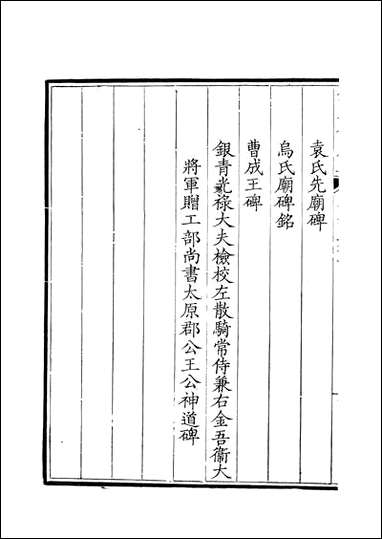 袁氏先廟碑
烏氏廟碑銘
曹成王碑
銀青光祿大夫檢校左散騎常侍兼右金吾衞大
將軍贈工部尚書太原郡公王公神道碑